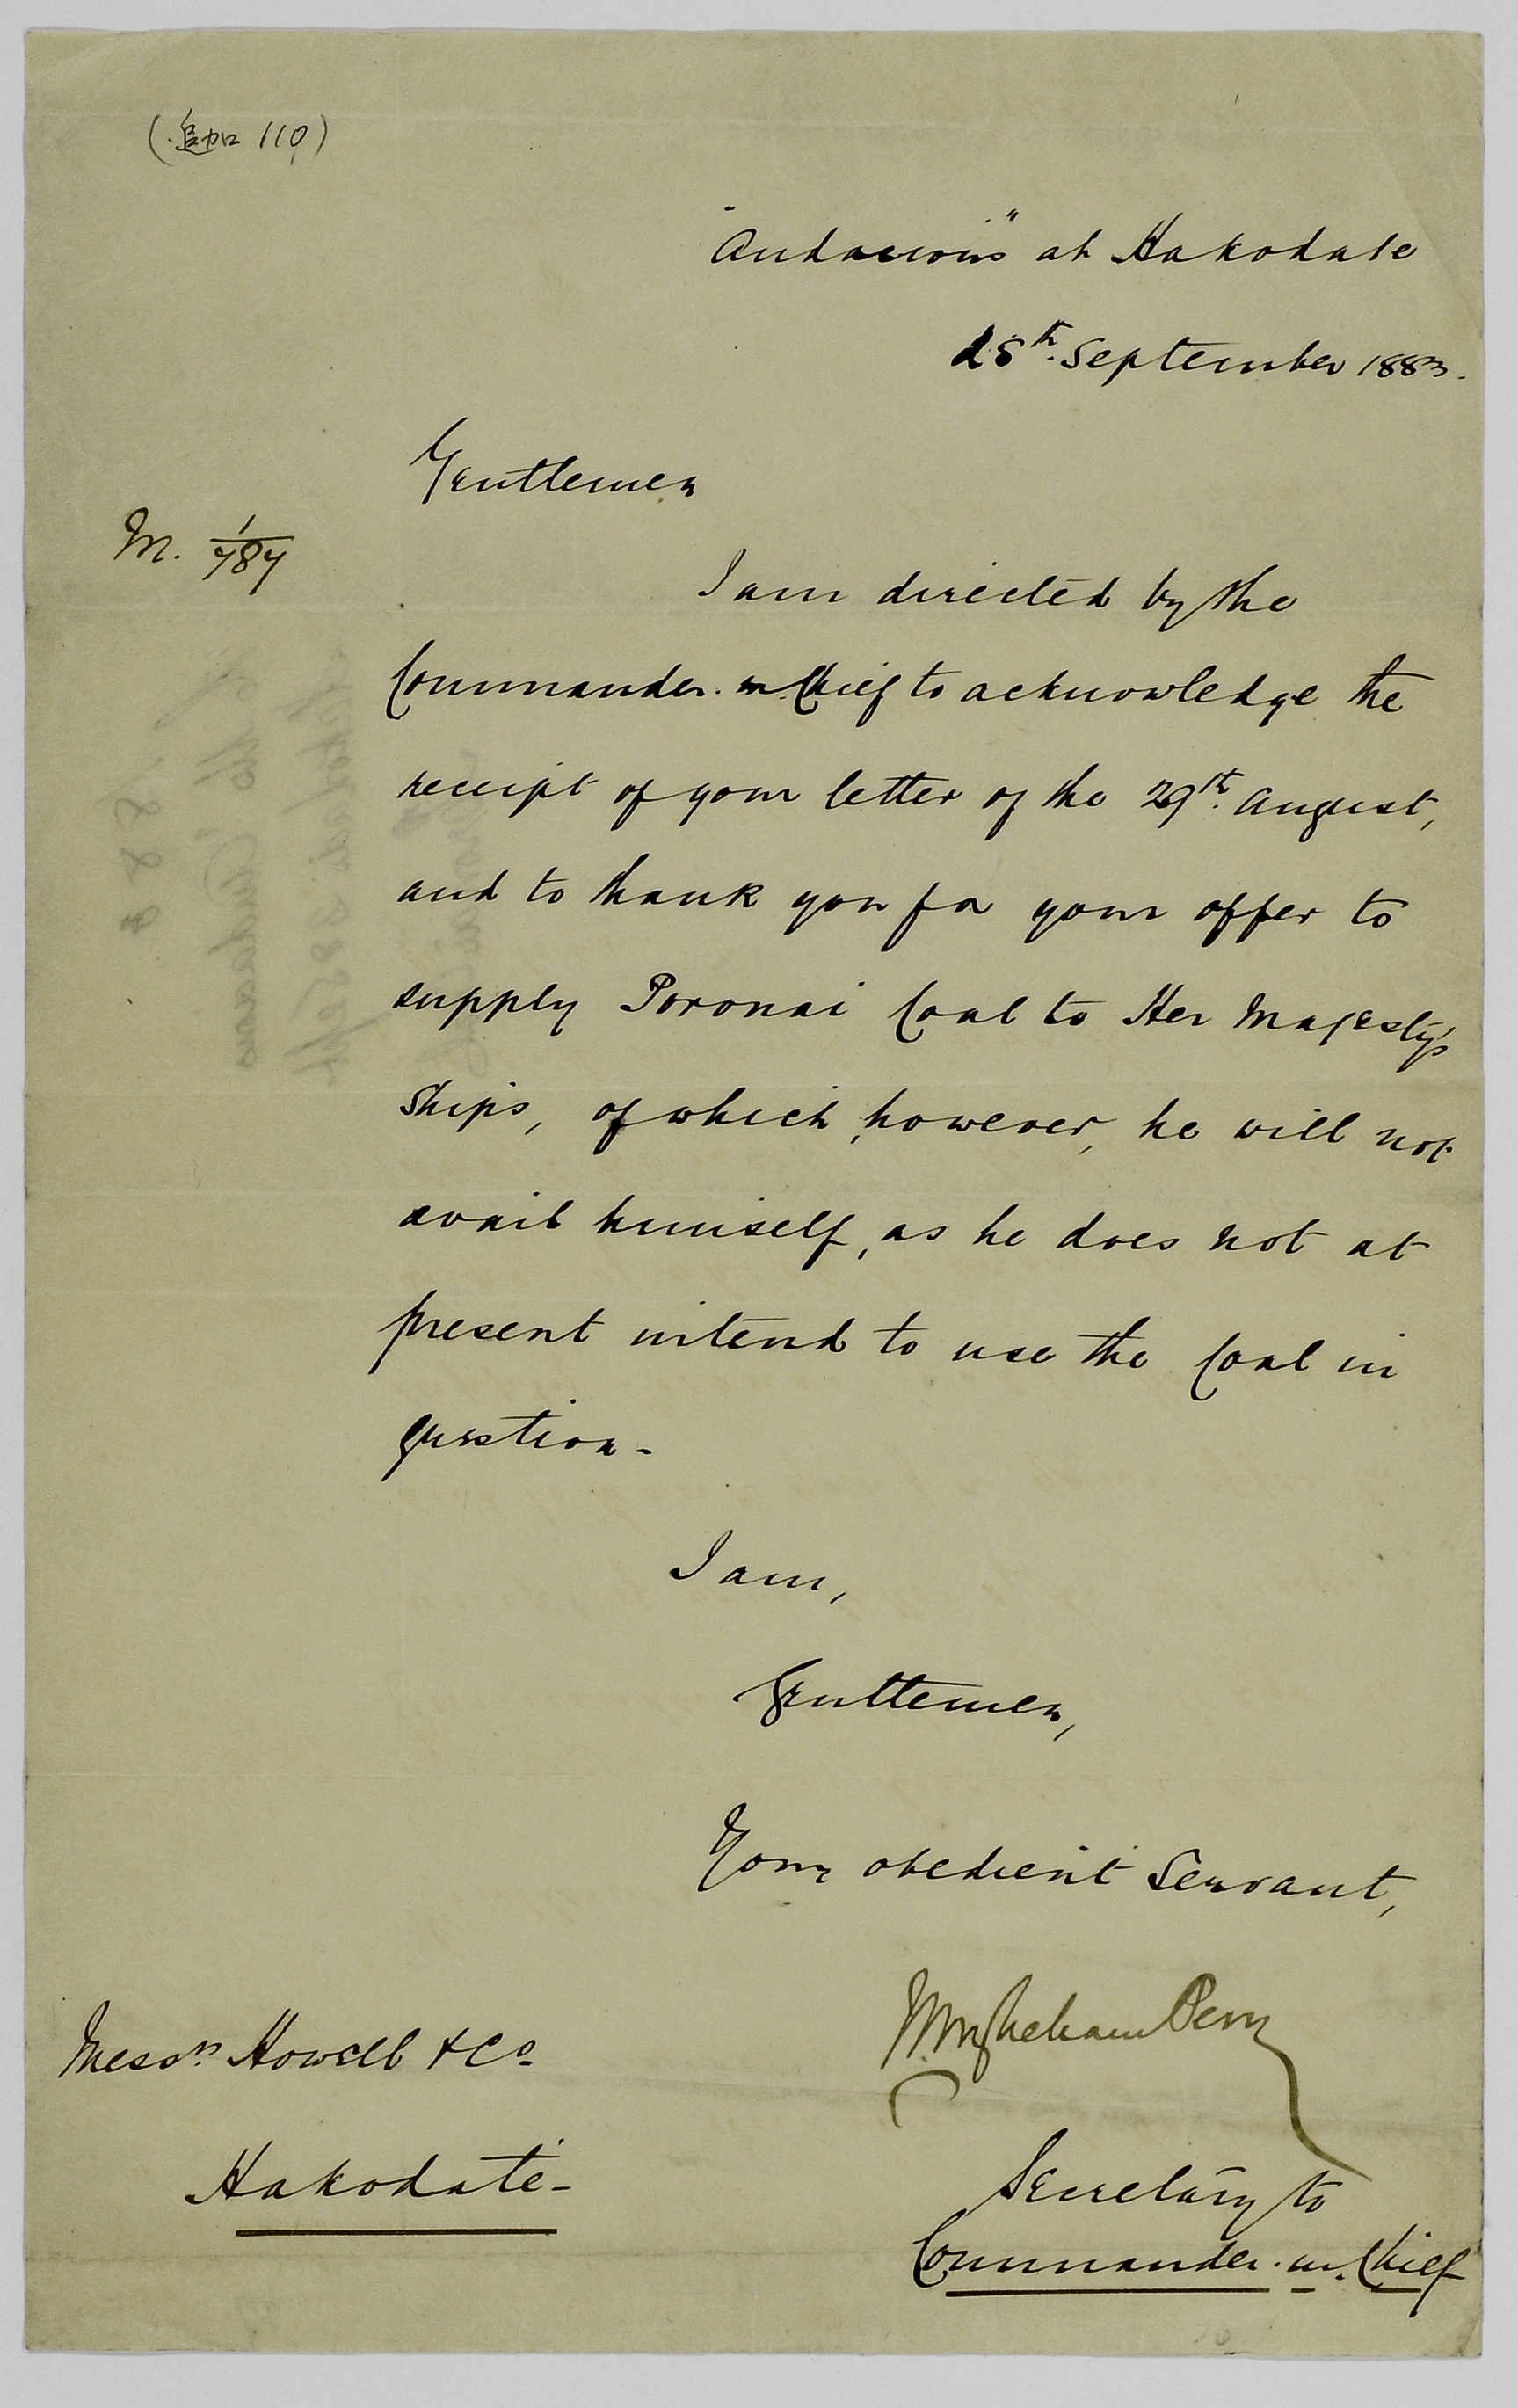 (追加 110)
"Audacious" at Hakodate
25th September 1883.
Gentlemen
M. 1/787
I am directed by the
Commander.in.Chief to acknowledge the
receipt of your letter of the 29th August,
and to thank you for your offer to
supply Poronai Coal to Her Majesty's
Ships, of which, however, he will not
avail himself, as he does not at
present intend to use the Coal in
question-
I am,
Gentlemen,
Your obedient Servant,
Perry
Messrs Howell & Co.
Hakodate-
Secretary to
Commander.in.Chief